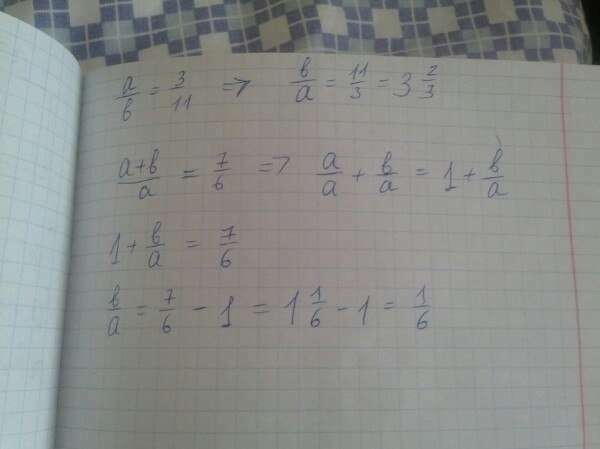 a/в = 3/11 => в/a = 11/3 = 3 2/3
a+в/a = 7/6 => a/a + в/a = 1 + в/a
1 + в/a = 7/6
в/a = 7/6 - 1 = 1 1/6 - 1 = 1/6